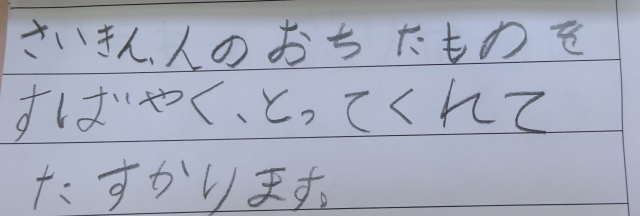 さいきん、人のおちたものを
すばやく、とってくれて
たすかります。